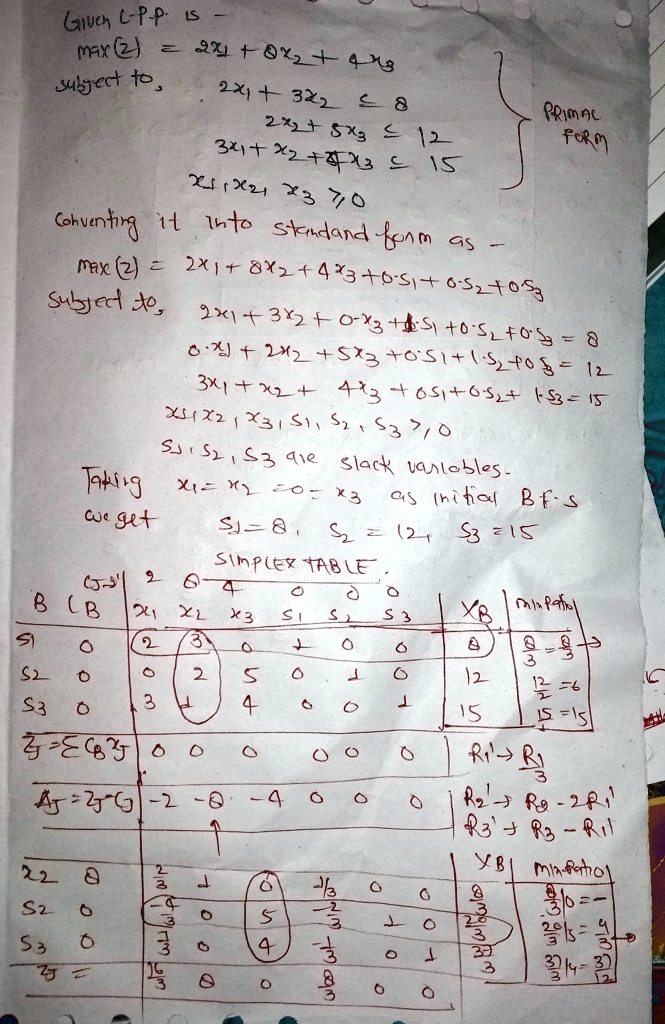 Given L.P.P. is -
max(z) = 2x1 + 8x2 + 4x3
subject to, 2x1 + 3x2 ≤ 8
2x2 + 5x3 ≤ 12
3x1 + x2 + 4x3 ≤ 15
x1, x2, x3 ≥ 0
PRIMAL
FORM
Converting it into standard form as -
max(z) = 2x1 + 8x2 + 4x3 + 0·S1 + 0·S2 + 0S3
Subject to, 2x1 + 3x2 + 0·x3 + 1·S1 + 0·S2 + 0·S3 = 8
0·x1 + 2x2 + 5x3 + 0·S1 + 1·S2 + 0S3 = 12
3x1 + x2 + 4x3 + 0S1 + 0·S2 + 1·S3 = 15
x1, x2, x3, S1, S2, S3 ≥ 0
S1, S2, S3 are slack variables.
Taking x1 = x2 = 0 = x3 as initial B.F.S
we get S1 = 8, S2 = 12, S3 = 15
SIMPLEX TABLE.
Cj→ 2 8 4 0 0 0
B CB x1 x2 x3 S1 S2 S3 XB min Ratio
S1 0 2 3 0 1 0 0 8 8/3 = 8/3 →
S2 0 0 2 5 0 1 0 12 12/2 = 6
S3 0 3 1 4 0 0 1 15 15 = 15
Zj = ΣCBxj 0 0 0 0 0 0 R1' → R1/3
Δj = Zj - Cj -2 -8 -4 0 0 0 R2' → R2 - 2R1'
↑ R3' → R3 - R1'
XB min Ratio
x2 8 2/3 1 0 1/3 0 0 8/3 8/3/0 = -
S2 0 -4/3 0 5 -2/3 1 0 20/3 20/3/5 = 4/3 →
S3 0 7/3 0 4 -1/3 0 1 37/3 37/3/4 = 37/12
Zj = 16/3 8 0 8/3 0 0